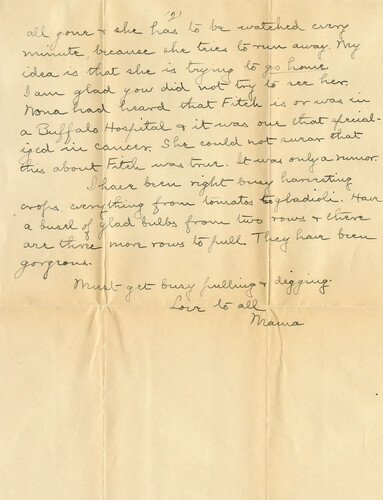 "2"
all gone & she has to be watched every
minute because she tries to run away. My
idea is that she is trying to go home
I am glad you did not try to see her.
Nona had heard that Fitch is or was in
a Buffalo Hospital & it was one that special-
ized in cancer. She could not swear that
this about Fitch was true. It was only a rumor.
I have been right busy harvesting
crops, everything from tomatos to gladioli. Have
a bushel of glad bulbs from two rows & there
are three more rows to pull They have been
gorgeous.
Must get busy pulling & digging.
Love to all
Mama